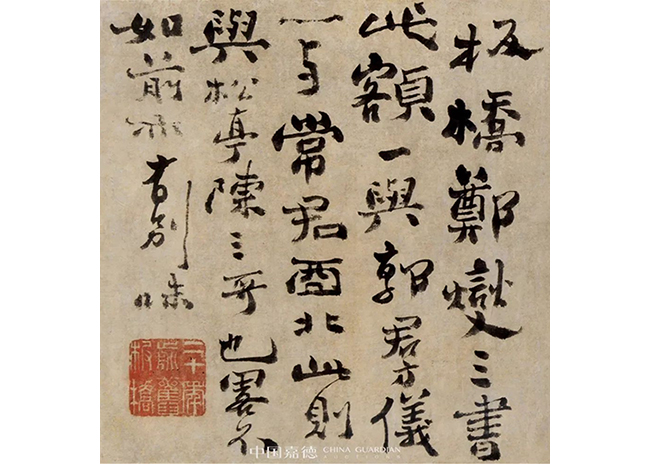 板橋鄭燮三書
此額一與郭君方儀
一与常君酉北此則
與松亭陳三哥也畧不
如前亦有別味
二十年前舊板橋
中国嘉德 CHINA GUARDIAN